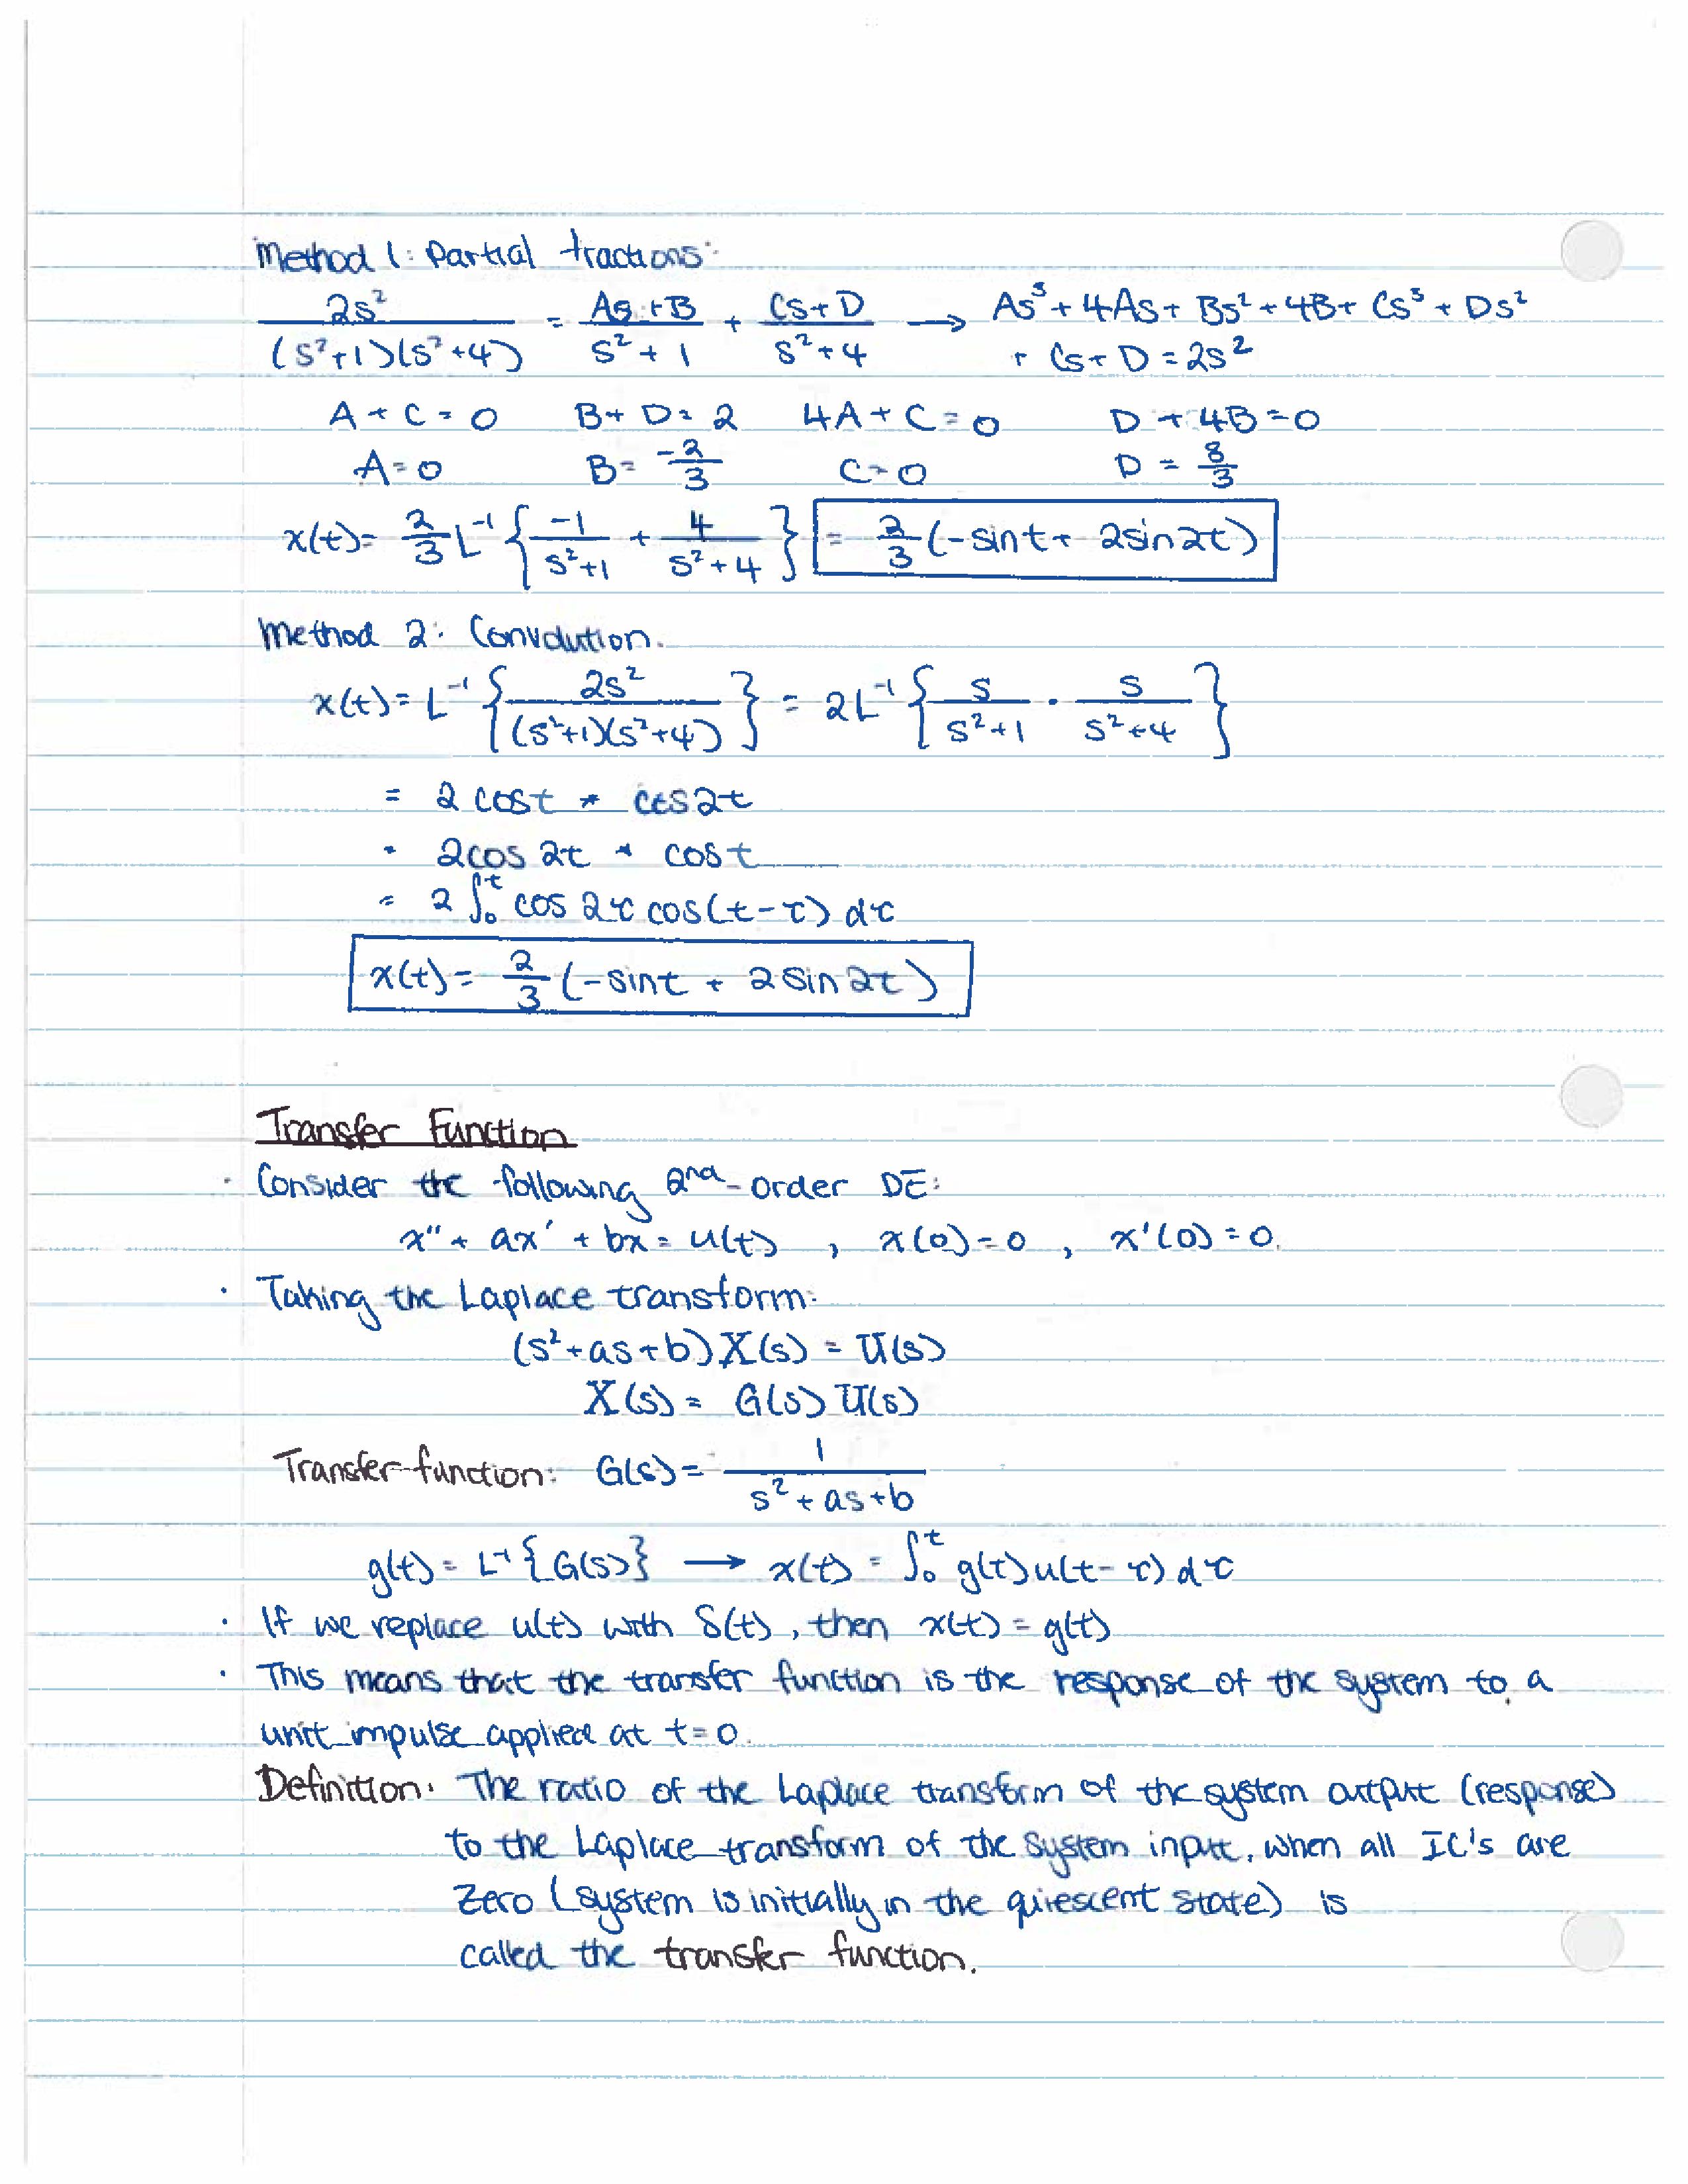 Method 1: Partial fractions:
2s²/((s²+1)(s²+4)) = (As+B)/(s²+1) + (Cs+D)/(s²+4) → As³ + 4As + Bs² + 4B + Cs³ + Ds²
+ Cs + D = 2s²
A + C = 0 B + D = 2 4A + C = 0 D + 4B = 0
A = 0 B = -2/3 C = 0 D = 8/3
x(t) = 2/3 L⁻¹ { -1/(s²+1) + 4/(s²+4) } = 2/3 (-sint + 2sin2t)
Method 2: Convolution.
x(t) = L⁻¹ { 2s²/((s²+1)(s²+4)) } = 2L⁻¹ { s/(s²+1) · s/(s²+4) }
= 2 cost * cos2t
= 2cos 2t * cost
= 2 ∫₀ᵗ cos 2τ cos(t-τ) dτ
x(t) = 2/3 (-sint + 2 sin 2t)
Transfer Function
· Consider the following 2nd-order DE:
x'' + ax' + bx = u(t) , x(0) = 0 , x'(0) = 0.
· Taking the Laplace transform:
(s²+as+b) X(s) = U(s)
X(s) = G(s) U(s)
Transfer function: G(s) = 1/(s² + as + b)
g(t) = L⁻¹ {G(s)} → x(t) = ∫₀ᵗ g(τ) u(t-τ) dτ
· If we replace u(t) with δ(t), then x(t) = g(t)
· This means that the transfer function is the response of the system to a
unit impulse applied at t=0.
Definition: The ratio of the Laplace transform of the system output (response)
to the Laplace transform of the system input, when all IC's are
zero (system is initially in the quiescent state) is
called the transfer function.